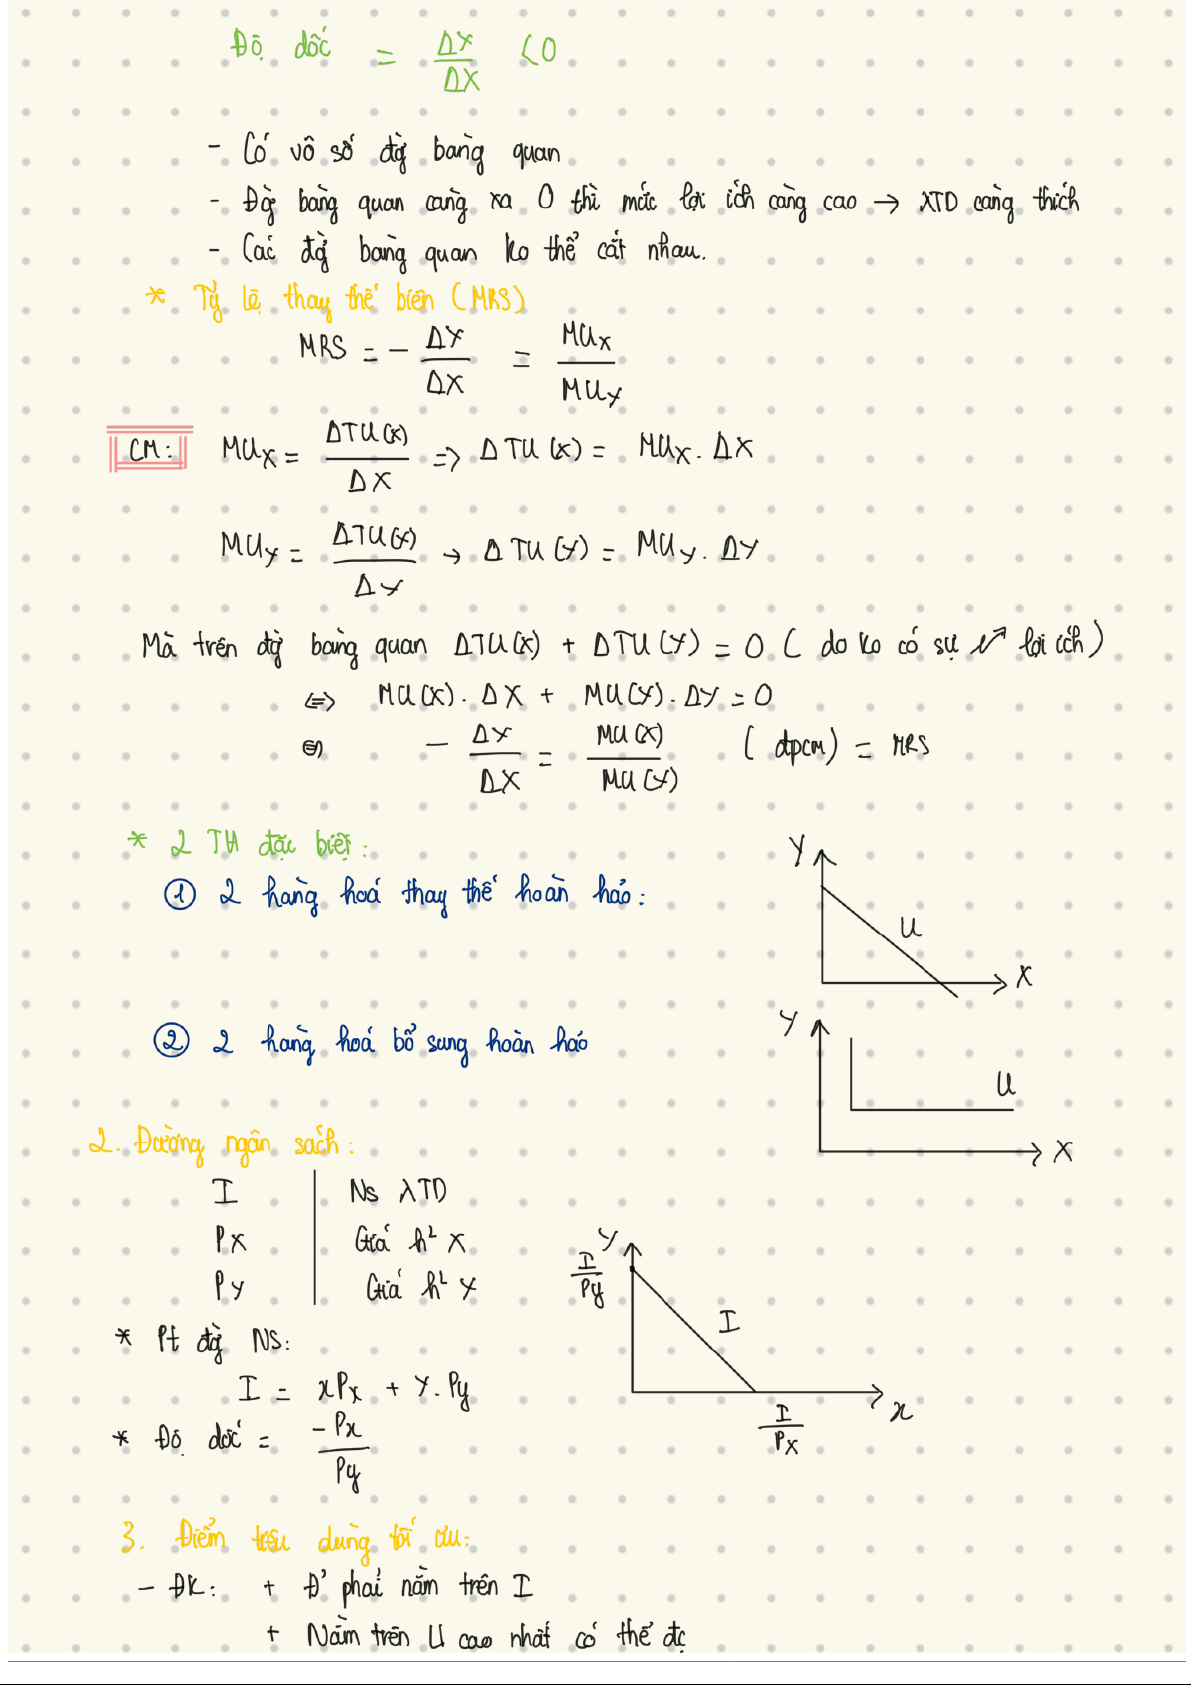 Độ dốc = ΔY/ΔX < 0
- Có vô số đg̀ bàng quan
- Đg̀ bàng quan càng xa O thì mức lợi ích càng cao → NTD càng thích
- Các đg̀ bàng quan ko thể cắt nhau.
* Tỷ lệ thay thế biên (MRS)
MRS = - ΔY/ΔX = MUx/MUy
CM: MUx = ΔTU(X)/ΔX => ΔTU(X) = MUx . ΔX
MUy = ΔTU(Y)/ΔY → ΔTU(Y) = MUy . ΔY
Mà trên đg̀ bàng quan ΔTU(X) + ΔTU(Y) = 0 ( do ko có sự ↗ lợi ích )
<=> MU(X) . ΔX + MU(Y) . ΔY = 0
<=> - ΔY/ΔX = MU(X)/MU(Y) ( đpcm ) = MRS
* 2 TH đặc biệt :
① 2 hàng hoá thay thế hoàn hảo :
Y
U
X
② 2 hàng hoá bổ sung hoàn hảo
Y
U
X
2. Đường ngân sách :
I | Ns NTD
Px | Giá h² X
Py | Giá h² Y
* Pt đg̀ NS:
I = xPx + Y.Py
* Độ dốc = -Px/Py
y
I/Py
I
I/Px
x
3. Điểm tiêu dùng tối ưu:
- ĐK: + Đ' phải nằm trên I
+ Nằm trên U cao nhất có thể đc